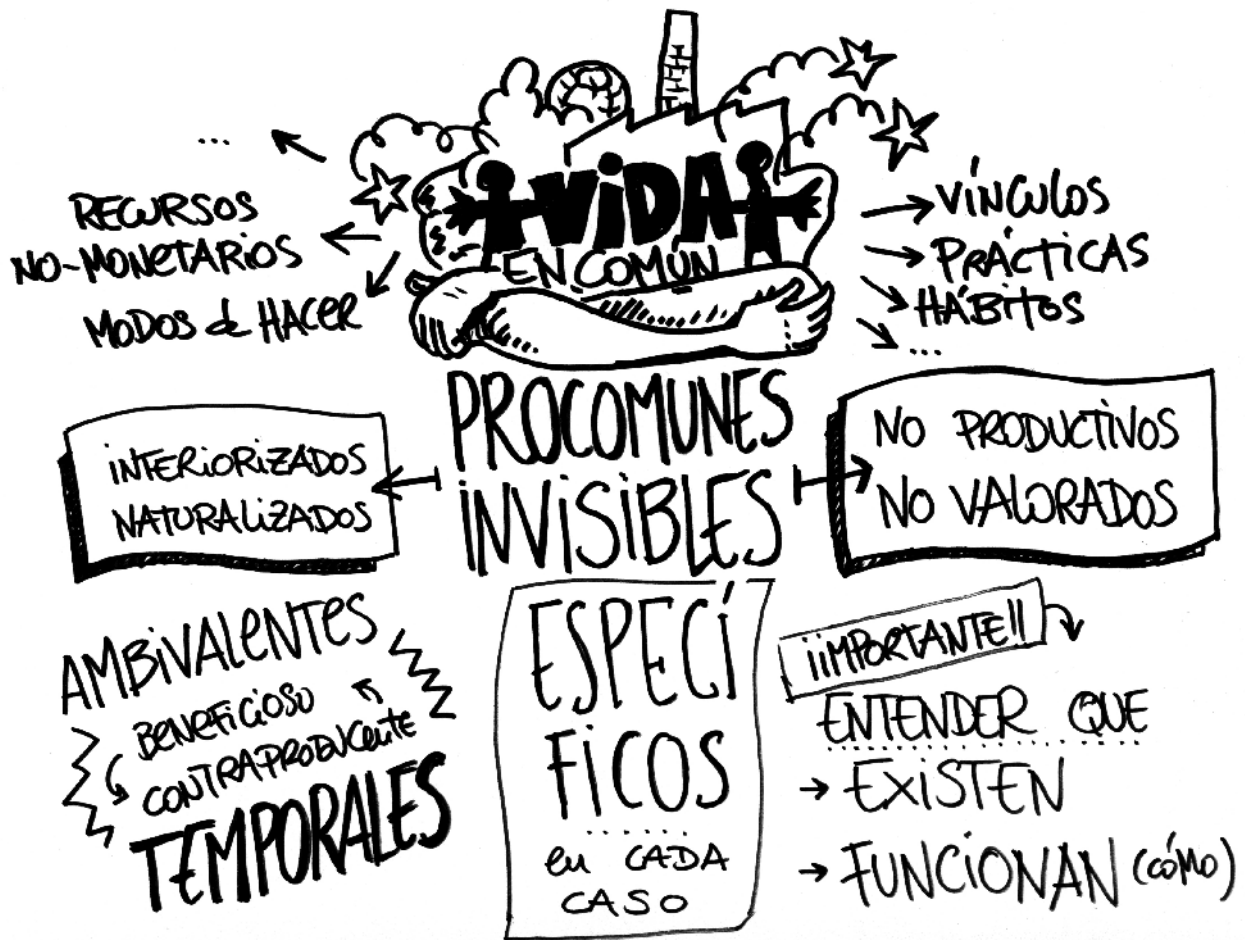 VIDA
EN COMÚN
...
RECURSOS
NO-MONETARIOS
MODOS de HACER
VÍNCULOS
PRÁCTICAS
HÁBITOS
...
PROCOMUNES
INVISIBLES
INTERIORIZADOS
NATURALIZADOS
NO PRODUCTIVOS
NO VALORADOS
AMBIVALENTES
BENEFICIOSO
CONTRAPRODUCENTE
TEMPORALES
ESPECÍ
FICOS
en CADA
CASO
¡¡IMPORTANTE!!
ENTENDER QUE
→ EXISTEN
→ FUNCIONAN (CÓMO)